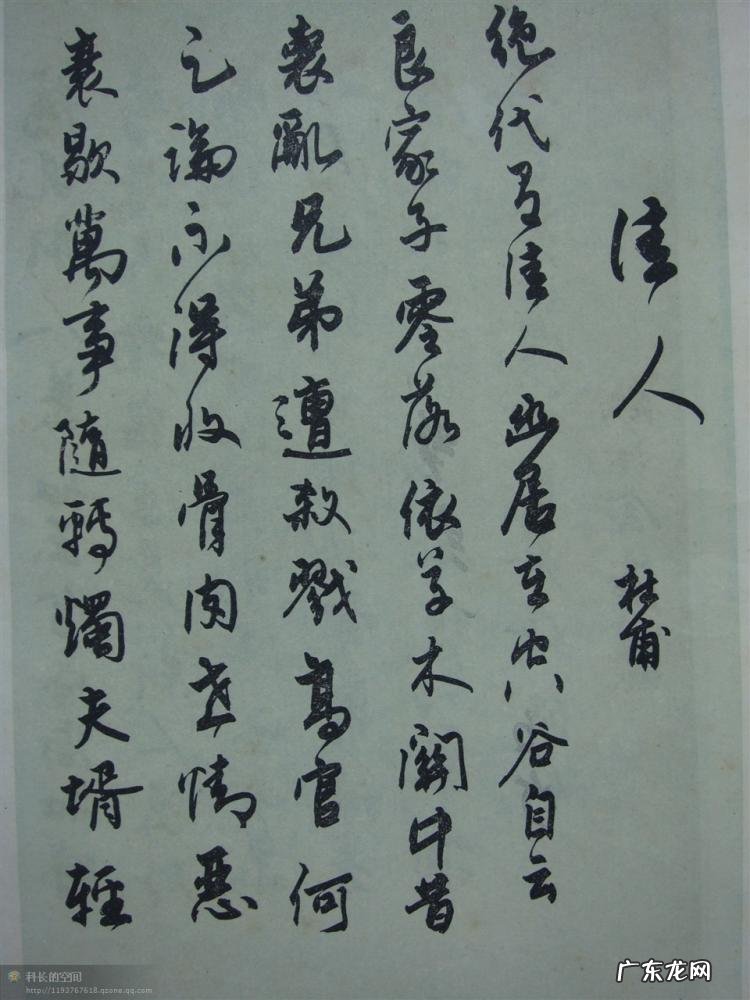 佳人
杜甫
絶代有佳人幽居在空谷自云
良家子零落依草木關中昔
喪亂兄弟遭殺戮高官何
足論不得收骨肉世情惡
衰歇萬事隨轉燭夫壻輕
科长的空间
http://1193767618.qzone.qq.com
广东龙网